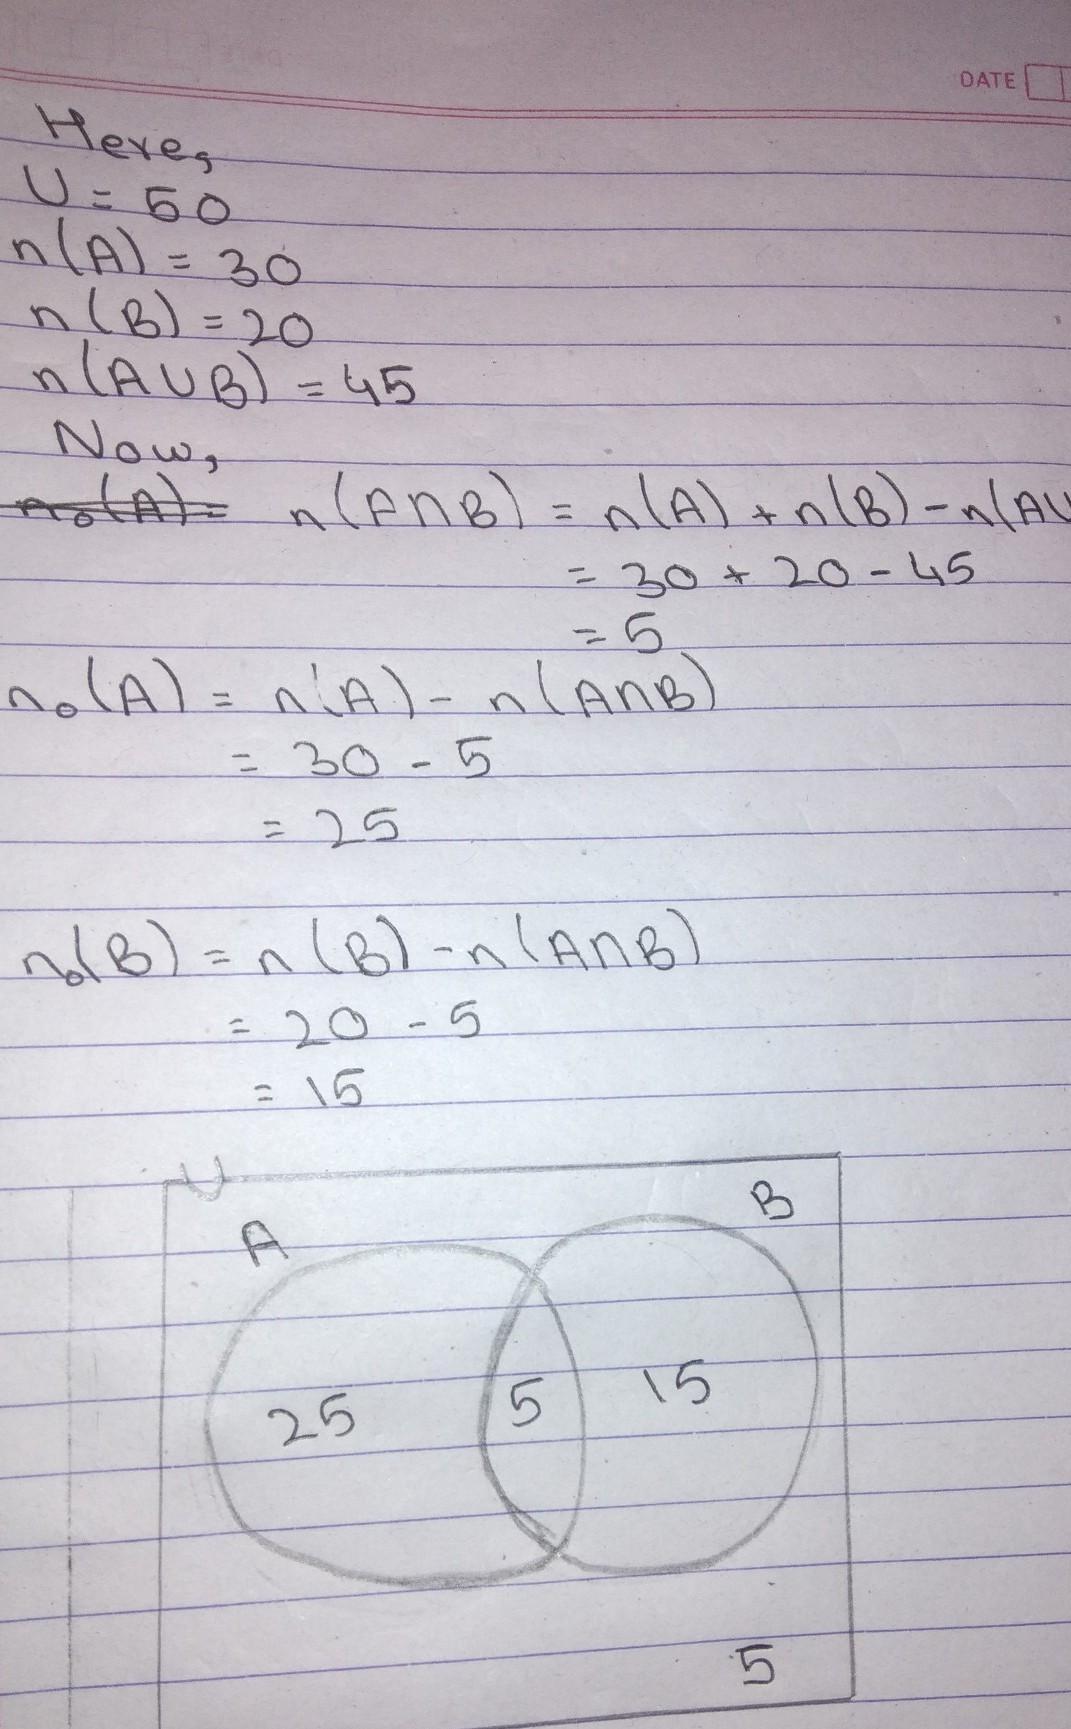 DATE
Here,
U = 50
n(A) = 30
n(B) = 20
n(A∪B) = 45
Now,
n₀(A) = n(A∩B) = n(A) + n(B) - n(A∪
= 30 + 20 - 45
= 5
n₀(A) = n(A) - n(A∩B)
= 30 - 5
= 25
n₀(B) = n(B) - n(A∩B)
= 20 - 5
= 15
U
A B
25 5 15
5